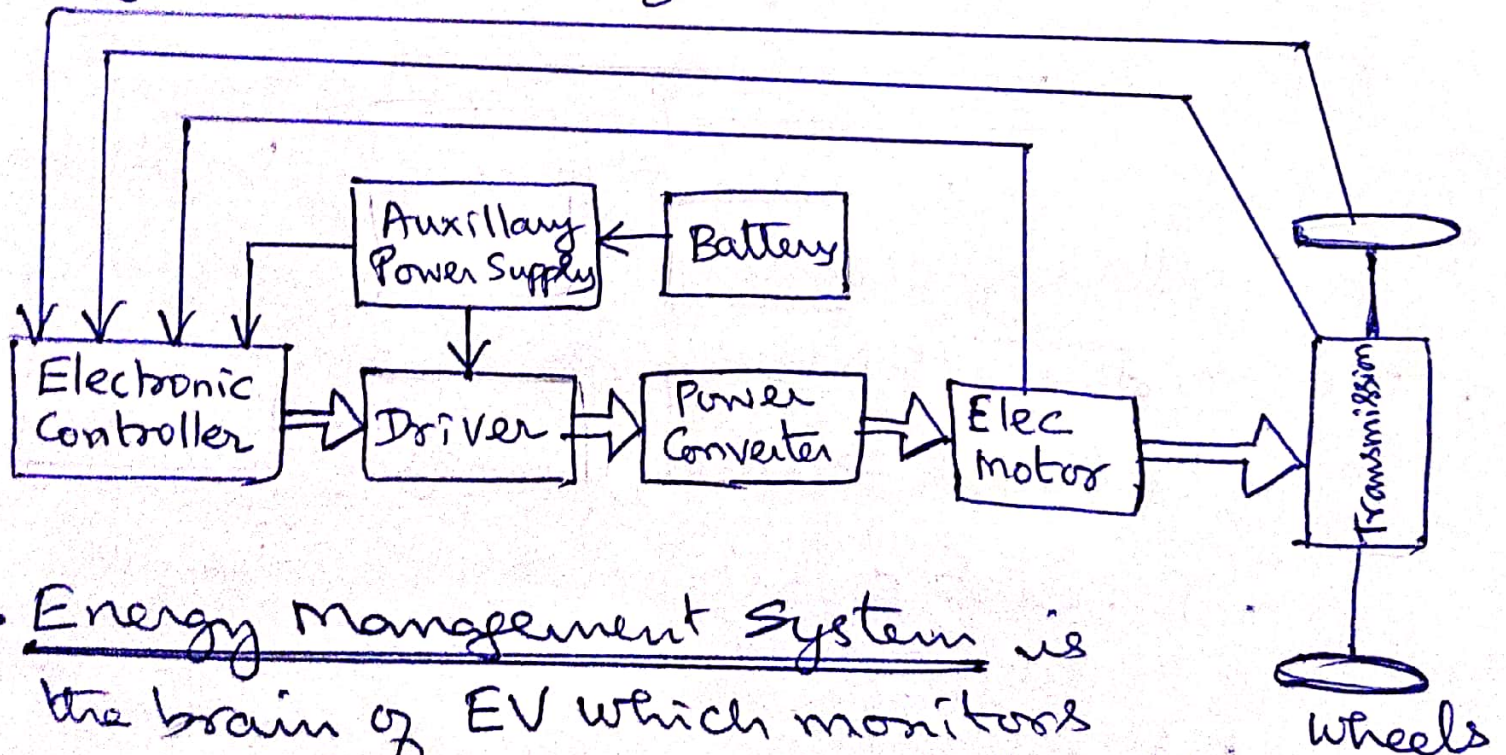 Auxillary
Power Supply
Battery
Electronic
Controller
Driver
Power
Converter
Elec
Motor
Transmission
wheels
. Energy Management System is
the brain of EV which monitors